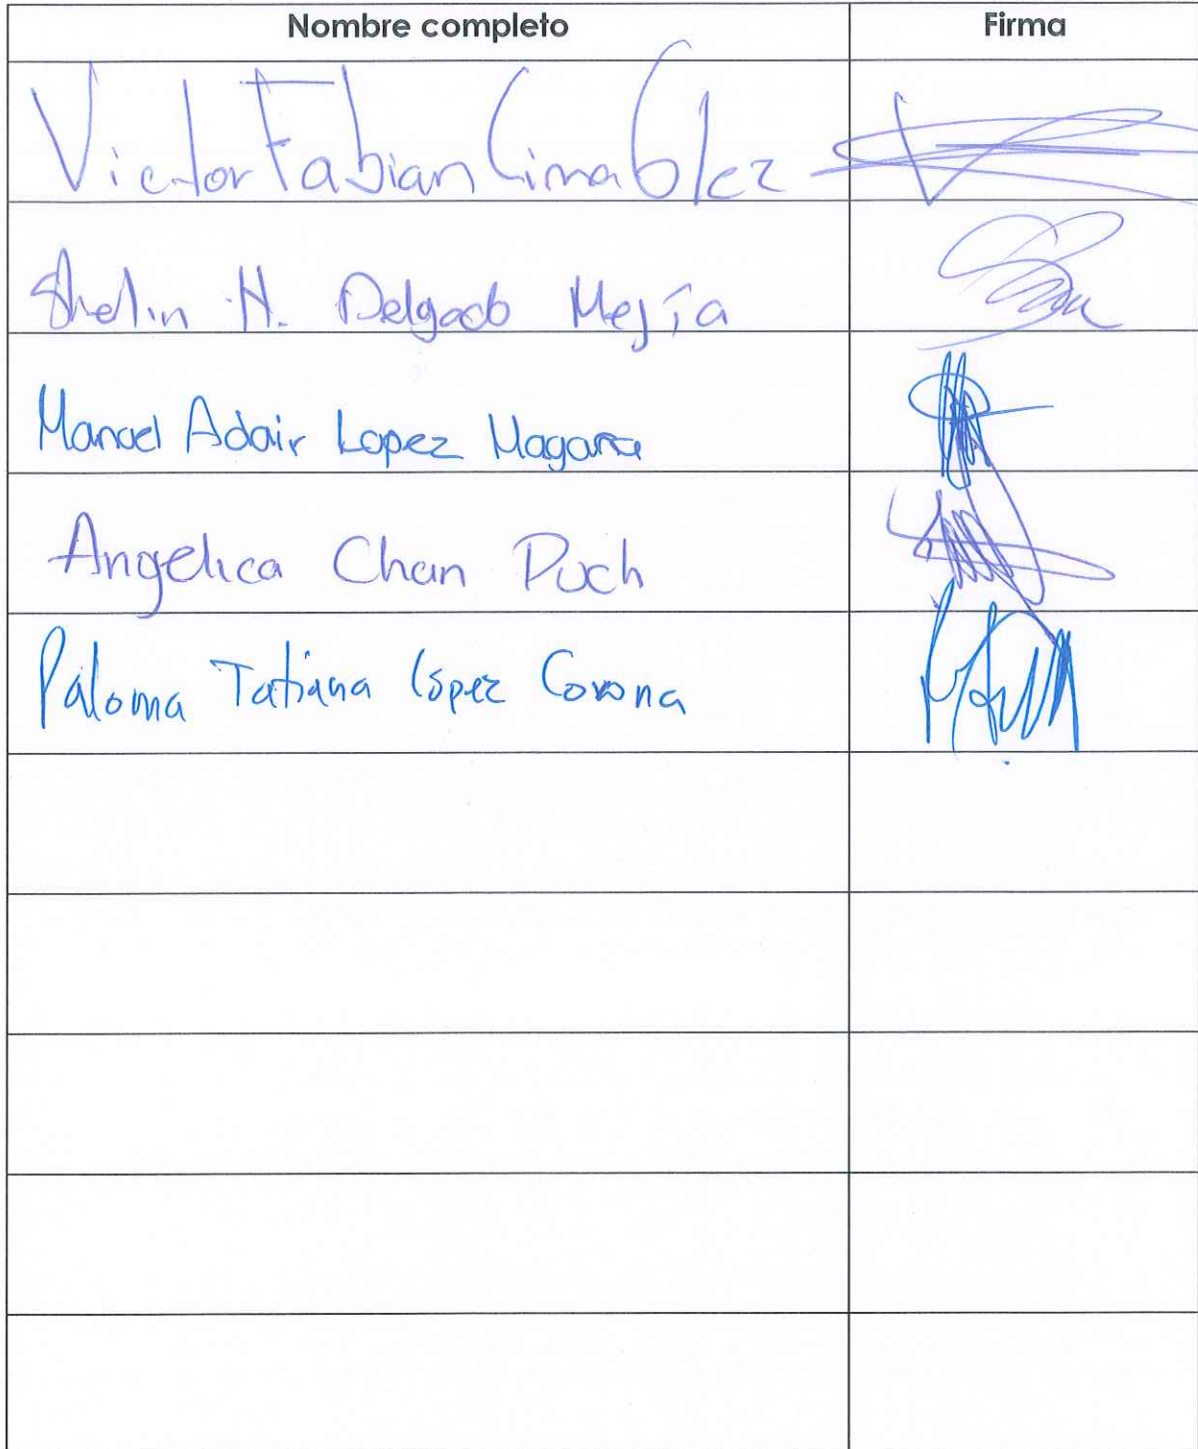 Nombre completo Firma
Victor Fabian Lima Glez
Shelin H. Delgado Mejía
Manuel Adair Lopez Magana
Angelica Chan Puch
Paloma Tatiana López Corona